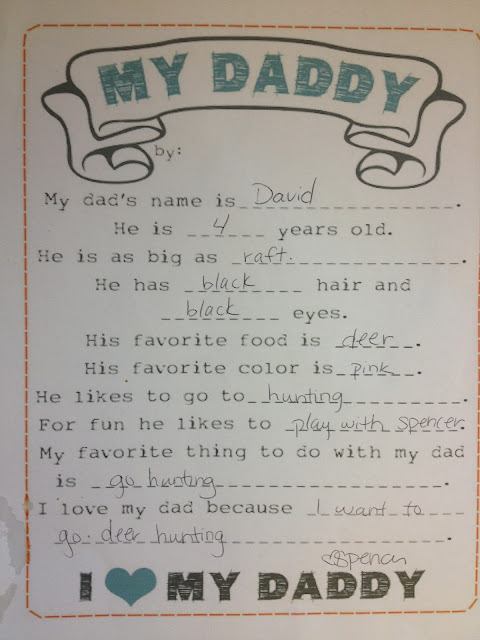 MY DADDY
by:
My dad's name is David.
He is 4 years old.
He is as big as raft.
He has black hair and
black eyes.
His favorite food is deer.
His favorite color is pink.
He likes to go to hunting.
For fun he likes to play with Spencer.
My favorite thing to do with my dad
is go hunting.
I love my dad because I want to
go deer hunting.
♡Spencer
I ♥ MY DADDY